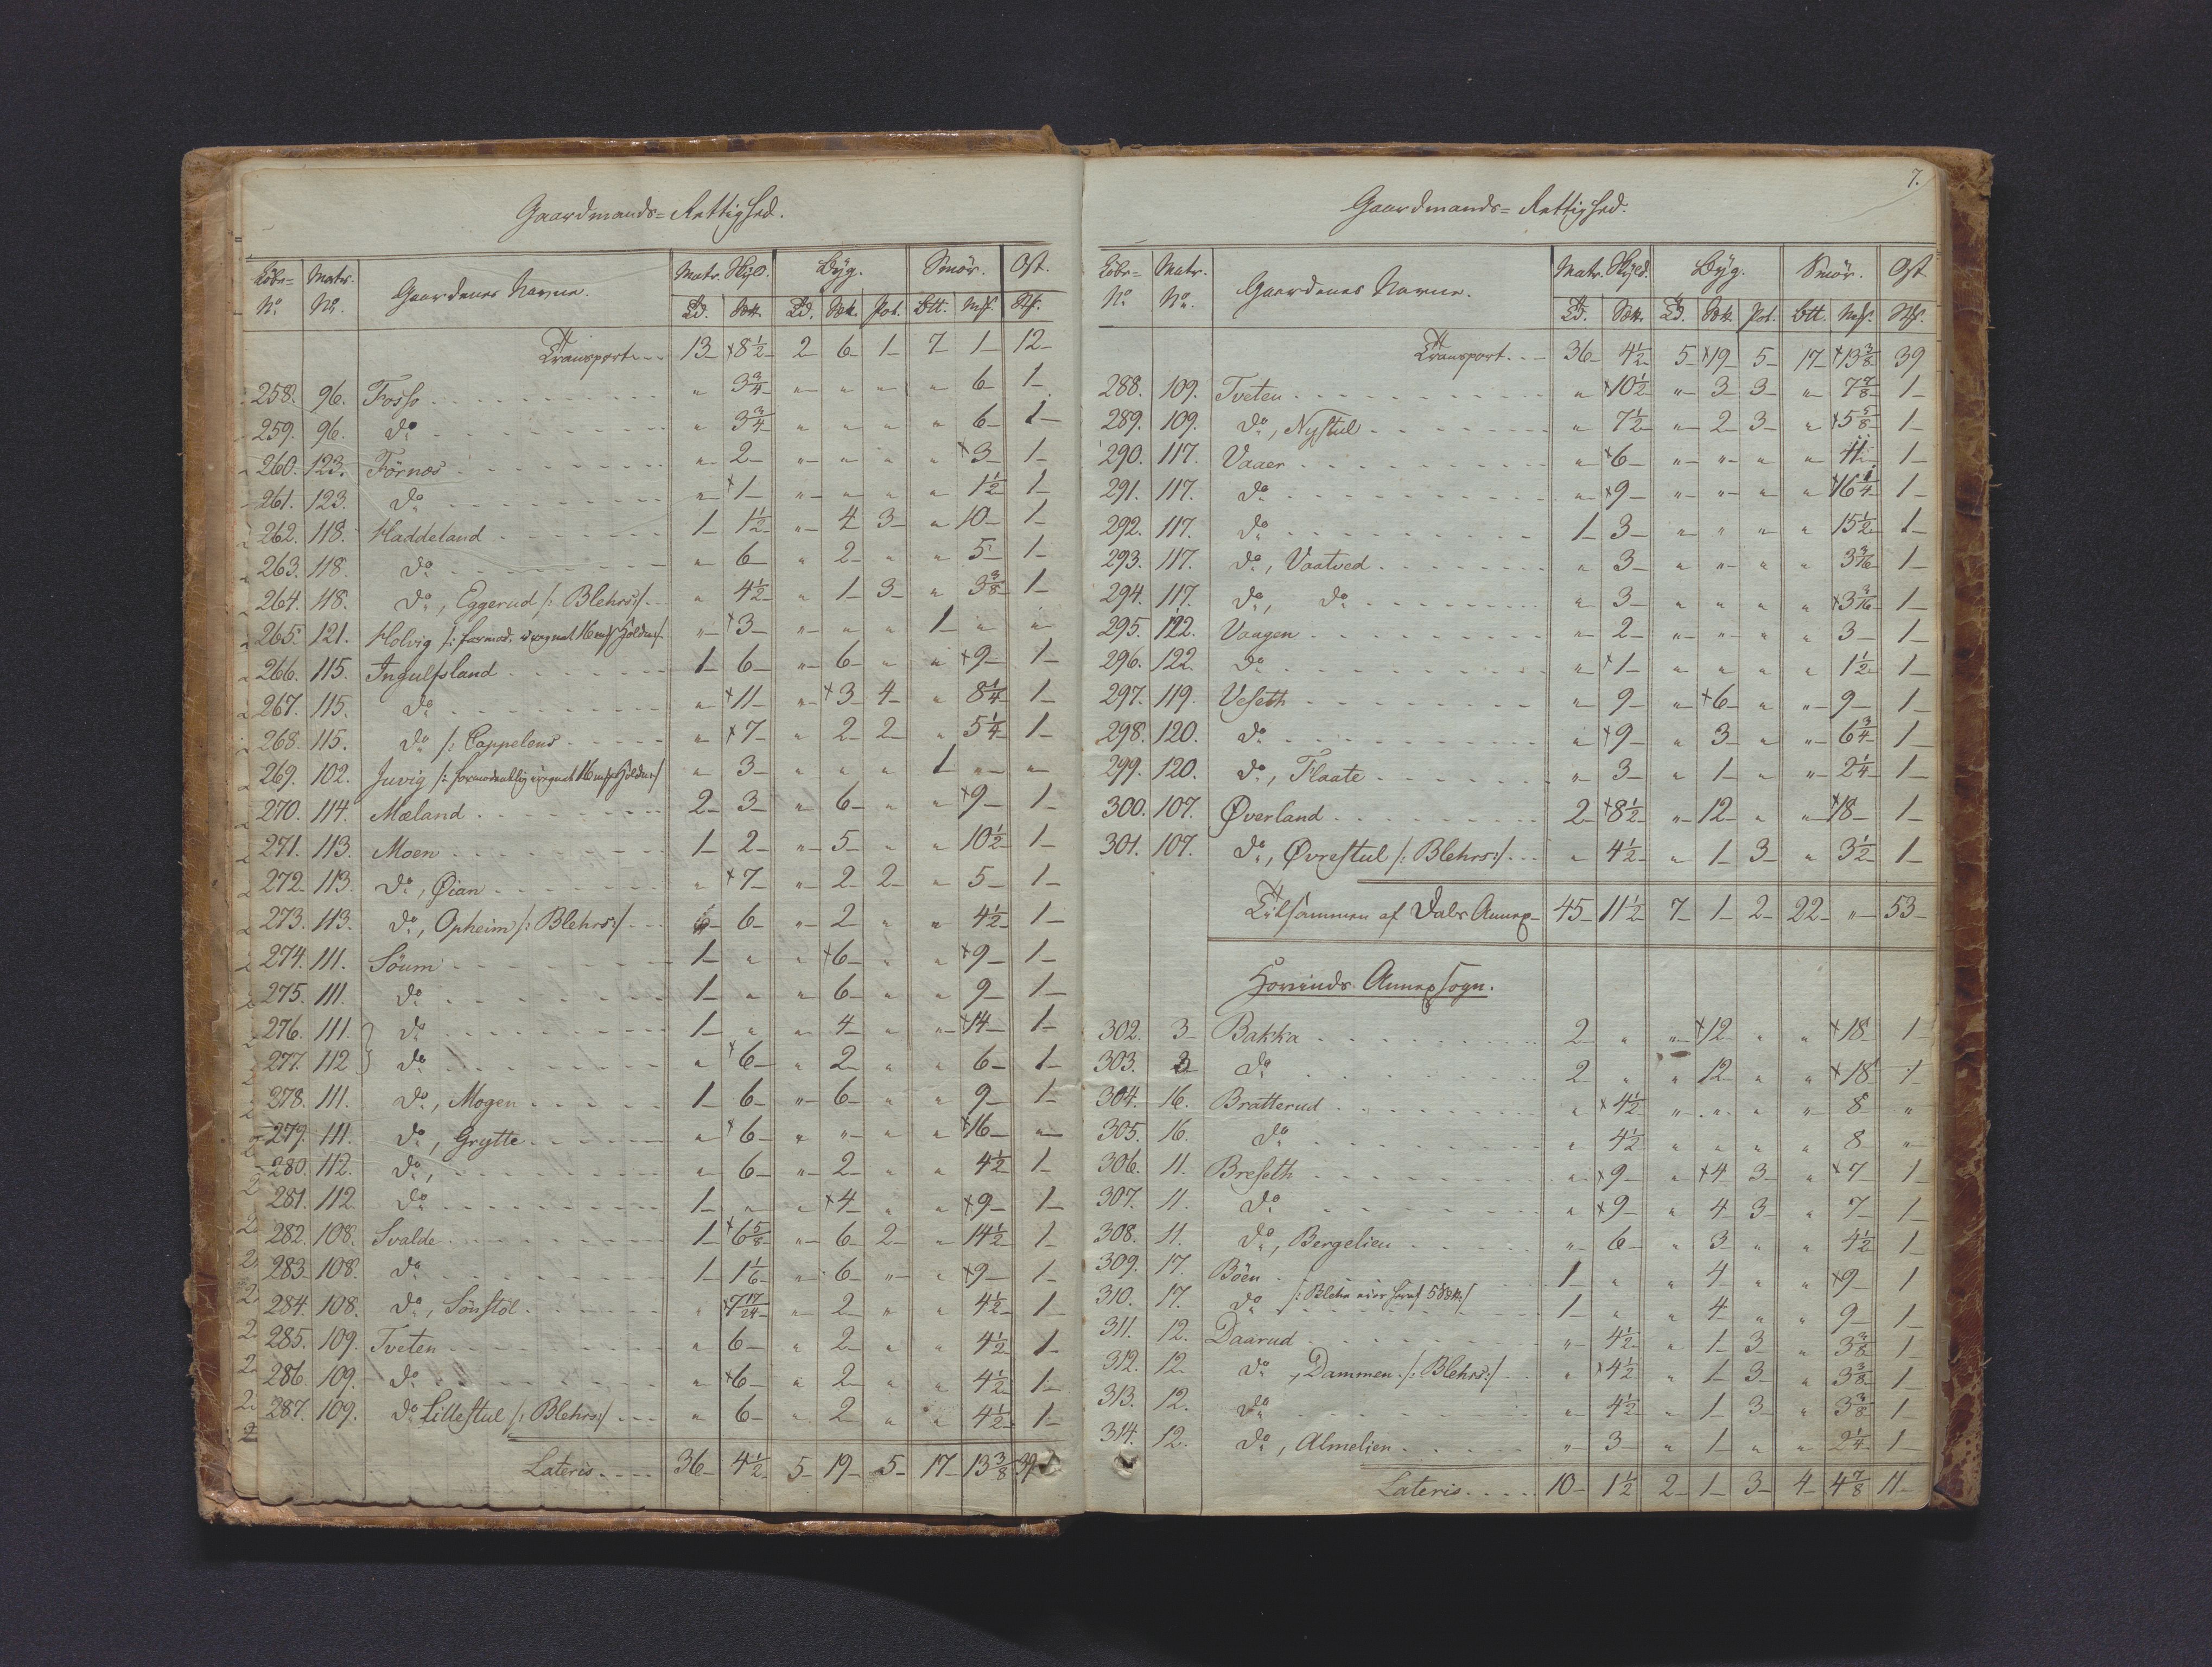 Gaardmands= Rettighed.
Löbe= Matr. Gaardenes Navne. Matr. Skyld. Byg. Smör. Ost.
No. No. Td. Sett. Td. Sett. Pot. Btt. Mk. Stk.
Transport - - 13 - ×8 1/2 - 2 - 6 - 1 - 7 - 1 - 12 -
258. 96. Fosso - - - " 3 3/4 - " " " " 6 - 1 -
259. 96. do - - - " 3 3/4 - " " " " 6 - 1 -
260. 123. Förnæs - - - " 2 - " " " " ×3 - 1 -
261. 123. do - - - " ×1 - " " " " 1 1/2 1 -
262. 118. Haddeland - - - 1 - 1 1/2 - " 4 - 3 - " 10 - 1 -
263. 118. do - - - " 6 - " 2 - " " 5 - 1 -
264. 118. do, Eggerud /: Blehrs :/ - " 4 1/2 - " 1 - 3 - " 3 3/8 1 -
265. 121. Holvig /: formod. iregnet 16 mk Holden :/ " ×3 - " " " 1 - " "
266. 115. Ingulfsland - - - 1 - 6 - " 6 - " " ×9 - 1 -
267. 115. do - - - " ×11 - " ×3 - 4 - " 8 1/4 1 -
268. 115. do /: Cappelens - - - " ×7 - " 2 - 2 - " 5 1/4 1 -
269. 102. Juvig /: formodentlig iregnet 16 mk Holden :/ " 3 - " " " 1 - " "
270. 114. Mæland - - - 2 - 3 - " 6 - " " ×9 - 1 -
271. 113. Moen - - - 1 - 2 - " 5 - " " 10 1/2 1 -
272. 113. do, Øian - - - " ×7 - " 2 - 2 - " 5 - 1 -
273. 113. do, Opheim /: Blehrs :/ - - " 6 - " 2 - " " 4 1/2 1 -
274. 111. Söum - - - 1 - " " ×6 - " " ×9 - 1 -
275. 111. do - - - 1 - " " 6 - " " 9 - 1 -
276. 111. } do - - - 1 - " " 4 - " " ×14 - 1 -
277. 112. } do - - - " ×6 - " 2 - " " 6 - 1 -
278. 111. do, Mogen - - - 1 - 6 - " 6 - " " 9 - 1 -
279. 111. do, Grytte - - - " ×6 - " " " " ×16 - "
280. 112. do, - - - " 6 - " 2 - " " 4 1/2 1 -
281. 112. do - - - 1 - " " ×4 - " " ×9 - 1 -
282. 108. Svalde - - - 1 - ×6 5/8 - " 6 - 2 - " 14 1/2 1 -
283. 108. do - - - 1 - 1 1/6 - " 6 - " " ×9 - 1 -
284. 108. do, Sönstöl - - - " ×7 17/24 - " 2 - " " 4 1/2 1 -
285. 109. Tveten - - - " 6 - " 2 - " " 4 1/2 1 -
286. 109. do - - - " ×6 - " 2 - " " 4 1/2 1 -
287. 109. do Lillestul /: Blehrs :/ - - - " 6 - " 2 - " " 4 1/2 1 -
Lateris - - - 36 - 4 1/2 5 - 19 - 5 - 17 - 13 3/8 39
7.
Gaardmands= Rettighed.
Löbe= Matr. Gaardenes Navne. Matr. Skyld. Byg. Smör. Ost
No. No. Td. Sett. Td. Sett. Pot. Btt. Mk. Stk.
Transport - - 36 - 4 1/2 5 - ×19 - 5 - 17 - ×13 3/8 39
288. 109. Tveten - - - " ×10 1/2 - " 3 - 3 - " 7 7/8 1 -
289. 109. do, Nystul - - - " 7 1/2 - " 2 - 3 - " ×5 5/8 1 -
290. 117. Vaaer - - - " ×6 - " " " " 11 - 1 -
291. 117. do - - - " ×9 - " " " " ×16 1/4 1 -
292. 117. do - - - 1 - 3 - " " " " 15 1/2 1 -
293. 117. do, Vaatved - - - " 3 - " " " " 3 3/16 1 -
294. 117. do, do - - - " 3 - " " " " ×3 3/16 1 -
295. 122. Vaagen - - - " 2 - " " " " 3 - 1 -
296. 122. do - - - " ×1 - " " " " 1 1/2 1 -
297. 119. Veseth - - - " 9 - " ×6 - " " 9 - 1 -
298. 120. do - - - " ×9 - " 3 - " " 6 3/4 1 -
299. 120. do, Flaate - - - " 3 - " 1 - " " 2 1/4 1 -
300. 107. Øverland - - - 2 - ×8 1/2 - " 12 - " " ×18 - 1 -
301. 107. do, Øvrestul /: Blehrs :/ - - " 4 1/2 - " 1 - 3 - " 3 1/2 1 -
Tilsammen af Dals Annex - 45 - 11 1/2 7 - 1 - 2 - 22 - " 53 -
Hovinds Annexsogn.
302. 3 - Bakka - - - 2 - " " ×12 - " " ×18 - 1
303. 3 do - - - 2 - " " 12 - " " ×18 1
304. 16. Bratterud - - - " ×4 1/2 - " " " " 8 - "
305. 16. do - - - " 4 1/2 - " " " " 8 - "
306. 11. Breseth - - - " ×9 - " ×4 - 3 - " ×7 - 1
307. 11. do - - - " ×9 - " 4 - 3 - " 7 - 1 -
308. 11. do, Bergelien - - - " 6 - " 3 - " " 4 1/2 1
309. 17. Böen - - - 1 - " " 4 - " " ×9 - 1
310. 17. do /: Blehr eier heraf 5 Sett :/ 1 - " " 4 - " " 9 - 1 -
311. 12. Daarud - - - " 4 1/2 - " 1 - 3 - " 3 3/8 1 -
312. 12. do, Dammen /: Blehrs :/ - - " ×4 1/2 - " 1 - 3 - " 3 3/8 1 -
313. 12. do - - - " 4 1/2 - " 1 - 3 - " 3 3/8 1 -
314. 12. do, Almelien - - - " 3 - " 1 - " " 2 1/4 1 -
Lateris - - - 10 - 1 1/2 2 - 1 - 3 - 4 - 4 7/8 11 -